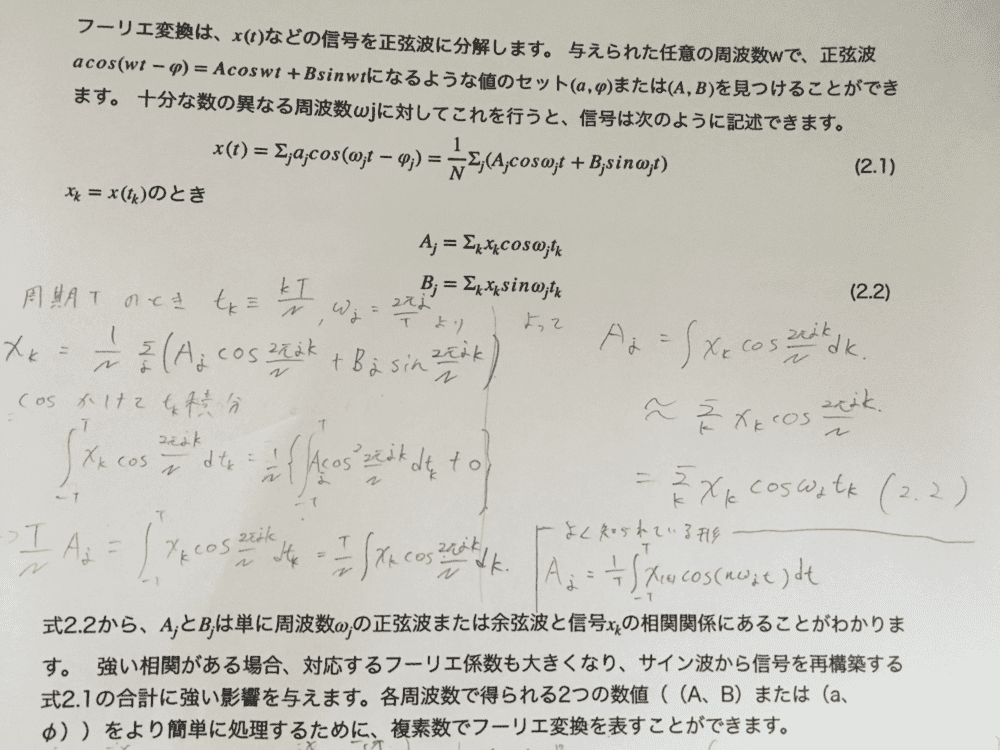 フーリエ変換は、x(t)などの信号を正弦波に分解します。 与えられた任意の周波数wで、正弦波
acos(wt − φ) = Acoswt + Bsinwtになるような値のセット(a, φ)または(A, B)を見つけることができ
ます。 十分な数の異なる周波数ωjに対してこれを行うと、信号は次のように記述できます。
x(t) = Σ_j a_j cos(ω_j t − φ_j) = 1/N Σ_j (A_j cosω_j t + B_j sinω_j t) (2.1)
x_k = x(t_k)のとき
A_j = Σ_k x_k cosω_j t_k
B_j = Σ_k x_k sinω_j t_k (2.2)
周期T のとき t_k ≡ kT/N , ω_j = 2πj/T より
x_k = 1/N Σ_j (A_j cos 2πjk/N + B_j sin 2πjk/N)
cos かけて t_k 積分
∫_{-T}^{T} x_k cos 2πjk/N dt_k = 1/N {∫_{-T}^{T} A_j cos² 2πjk/N dt_k + 0}
→ T/N A_j = ∫_{-T}^{T} x_k cos 2πjk/N dt_k = T/N ∫ x_k cos 2πjk/N dk.
よって
A_j = ∫ x_k cos 2πjk/N dk.
≈ Σ_k x_k cos 2πjk/N.
= Σ_k x_k cos ω_j t_k (2.2)
よく知られている形
A_j = 1/T ∫_{-T}^{T} x(t) cos(nω_j t) dt
式2.2から、A_jとB_jは単に周波数ω_jの正弦波または余弦波と信号x_kの相関関係にあることがわかりま
す。 強い相関がある場合、対応するフーリエ係数も大きくなり、サイン波から信号を再構築する
式2.1の合計に強い影響を与えます。各周波数で得られる2つの数値（（A、B）または（a、
φ））をより簡単に処理するために、複素数でフーリエ変換を表すことができます。